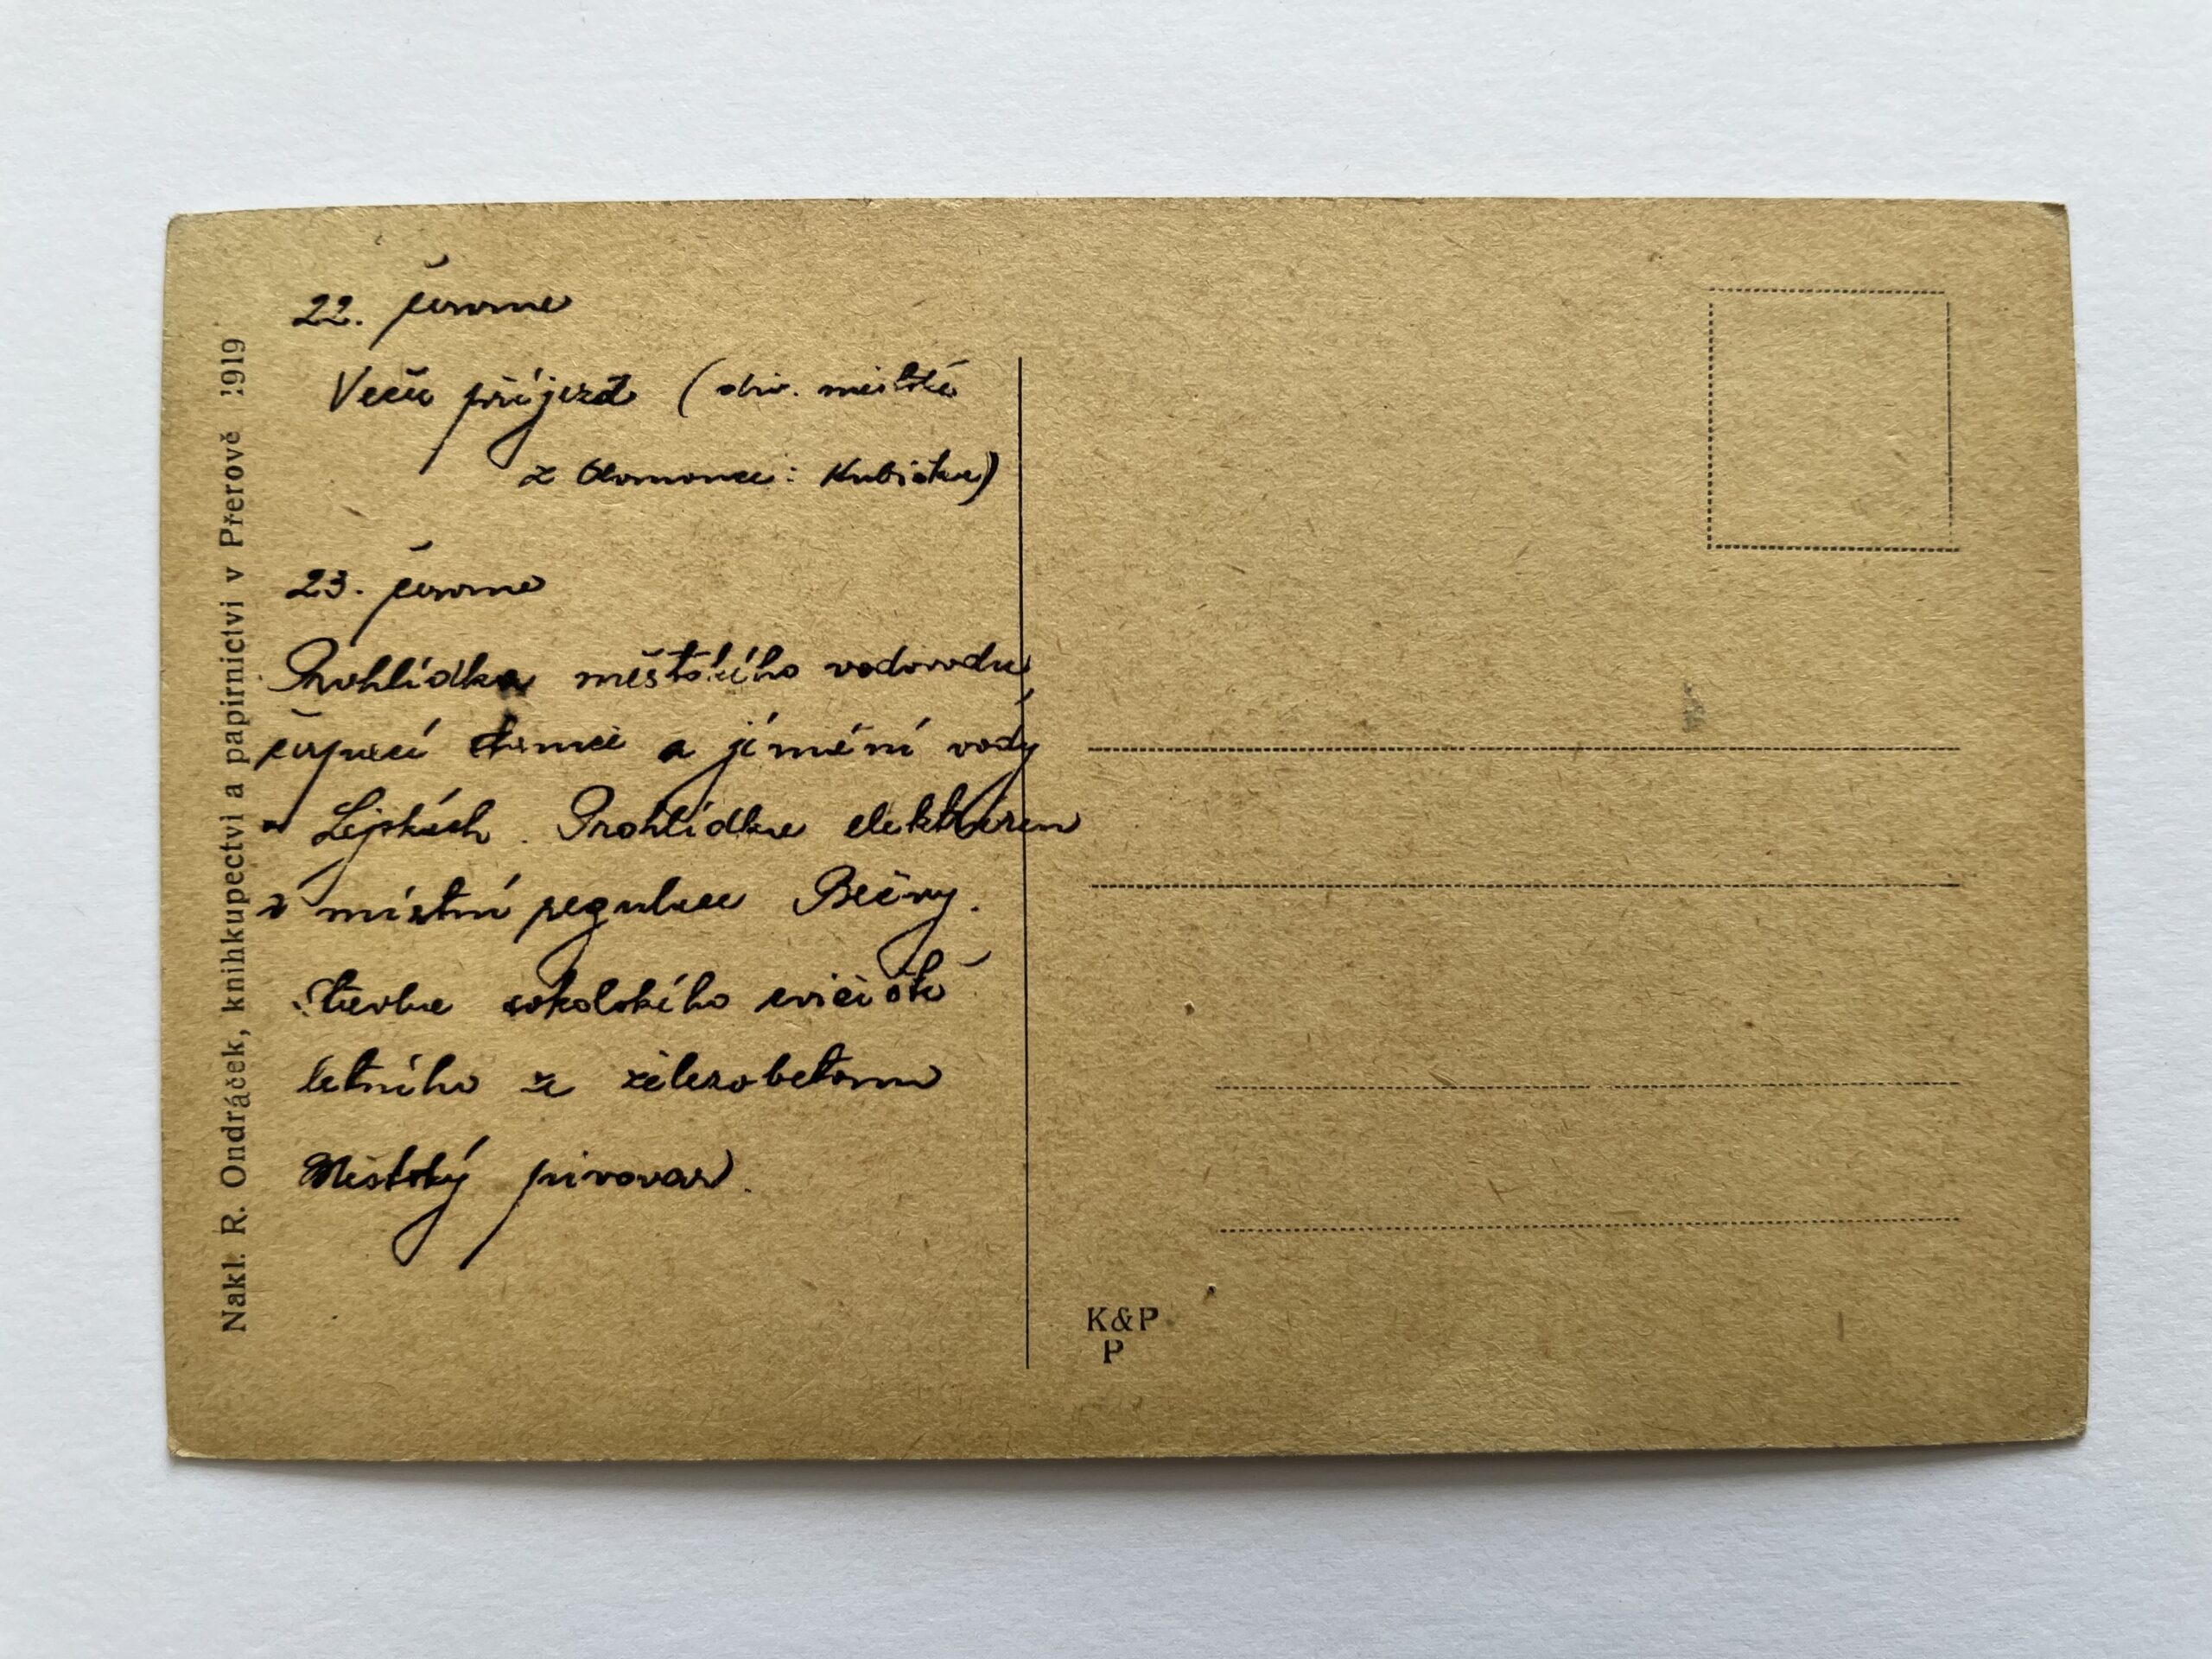 22. června
Večer příjezd (div. městské
z Olomouce: Kubíčka)
23. června
Prohlídka městského vodovodu,
čerpací stanice a jímání vody
v Lýskách. Prohlídka elektráren
a místní regulace Bečvy.
Stavba sokolského cvičiště
letního ze železobetonu
Městský pivovar.
Nakl. R. Ondráček, knihkupectvi a papirnictvi v Přerově 1919
K&P
P